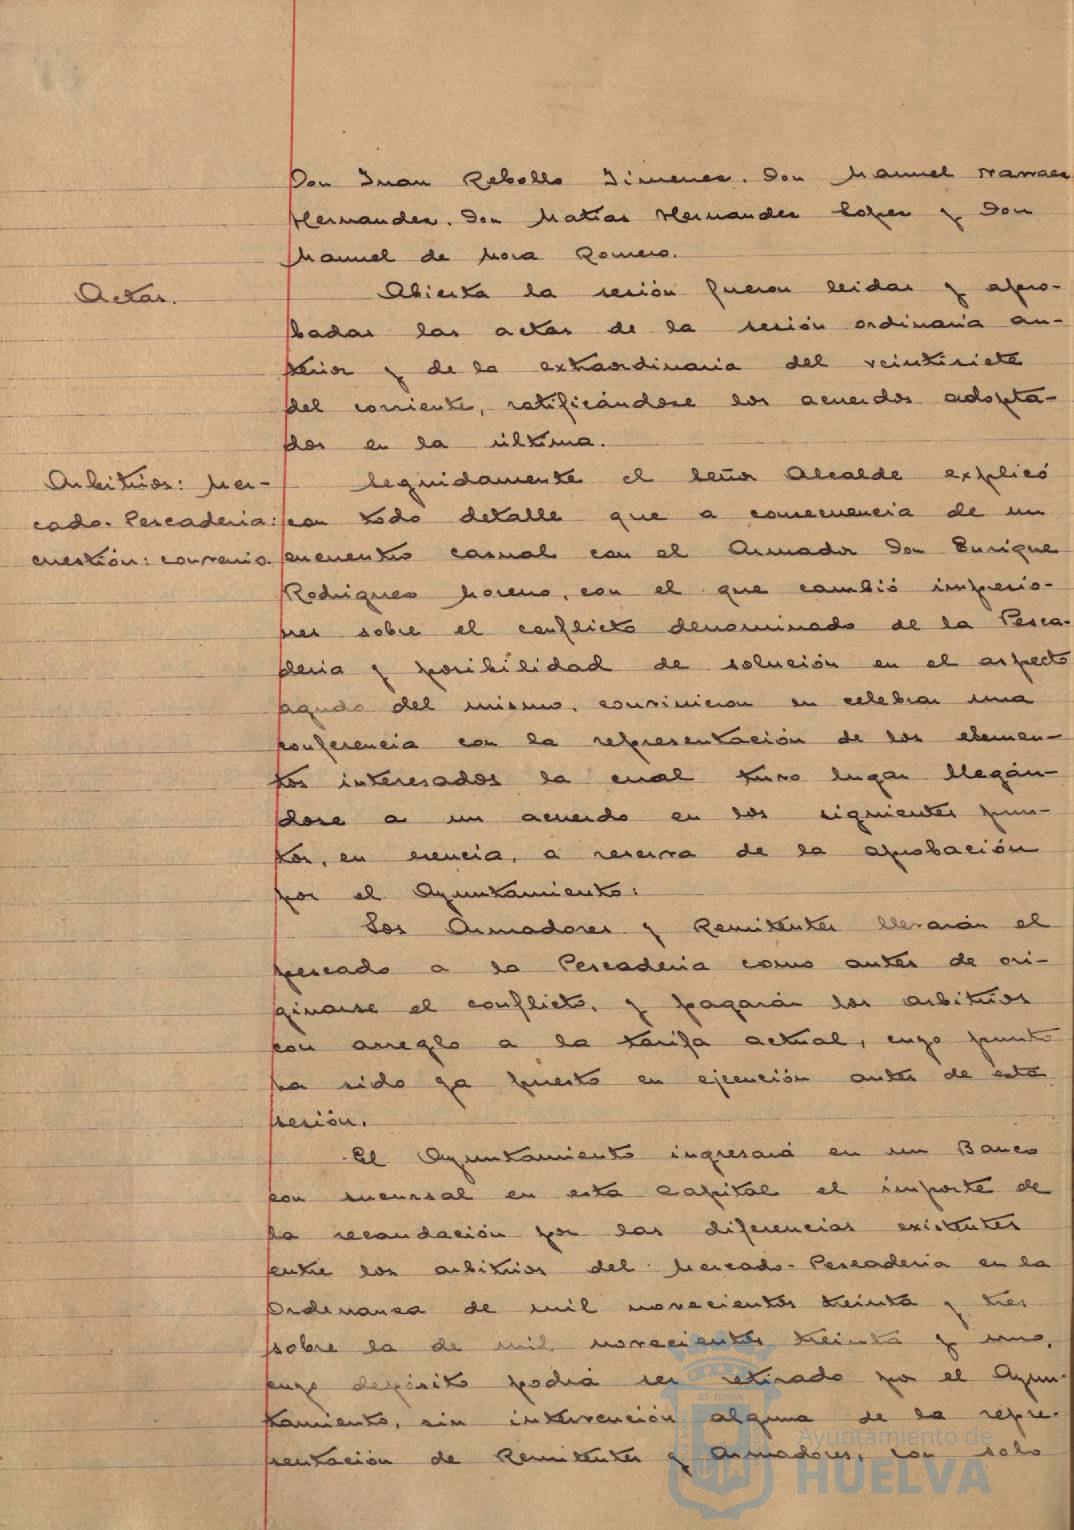 Don Juan Rebollo Jimenez. Don Manuel Narvaez
Hernandez. Don Matias Hernandez Lopez y Don
Manuel de Mora Romero.
Actas.
Abierta la sesión fueron leidas y apro-
badas las actas de la sesión ordinaria an-
terior y de la extraordinaria del veintisiete
del corriente, ratificándose los acuerdos adopta-
dos en la última.
Arbitrios: Mer-
cado-Pescaderia:
cuestión: convenio.
Seguidamente el Señor Alcalde explicó
con todo detalle que a consecuencia de un
encuentro casual con el Armador Don Enrique
Rodriguez Moreno, con el que cambió impresio-
nes sobre el conflicto denominado de la Pesca-
deria y posibilidad de solución en el aspecto
agudo del mismo, convinieron en celebrar una
conferencia con la representación de los elemen-
tos interesados la cual tuvo lugar llegán-
dose a un acuerdo en los siguientes pun-
tos, en esencia, a reserva de la aprobación
por el Ayuntamiento:
Los Armadores y Remitentes llevarán el
pescado a la Pescaderia como antes de ori-
ginarse el conflicto, y pagarán los arbitrios
con arreglo a la tarifa actual, cuyo punto
ha sido ya puesto en ejecución antes de esta
sesión.
El Ayuntamiento ingresará en un Banco
con sucursal en esta Capital el importe de
la recaudación por las diferencias existentes
entre los arbitrios del Mercado-Pescaderia en la
Ordenanza de mil novecientos treinta y tres
sobre la de mil novecientos treinta y uno,
cuyo depósito podrá ser retirado por el Ayun-
tamiento, sin intervención alguna de la repre-
sentación de Remitentes y Armadores, con solo
Ayuntamiento de
HUELVA